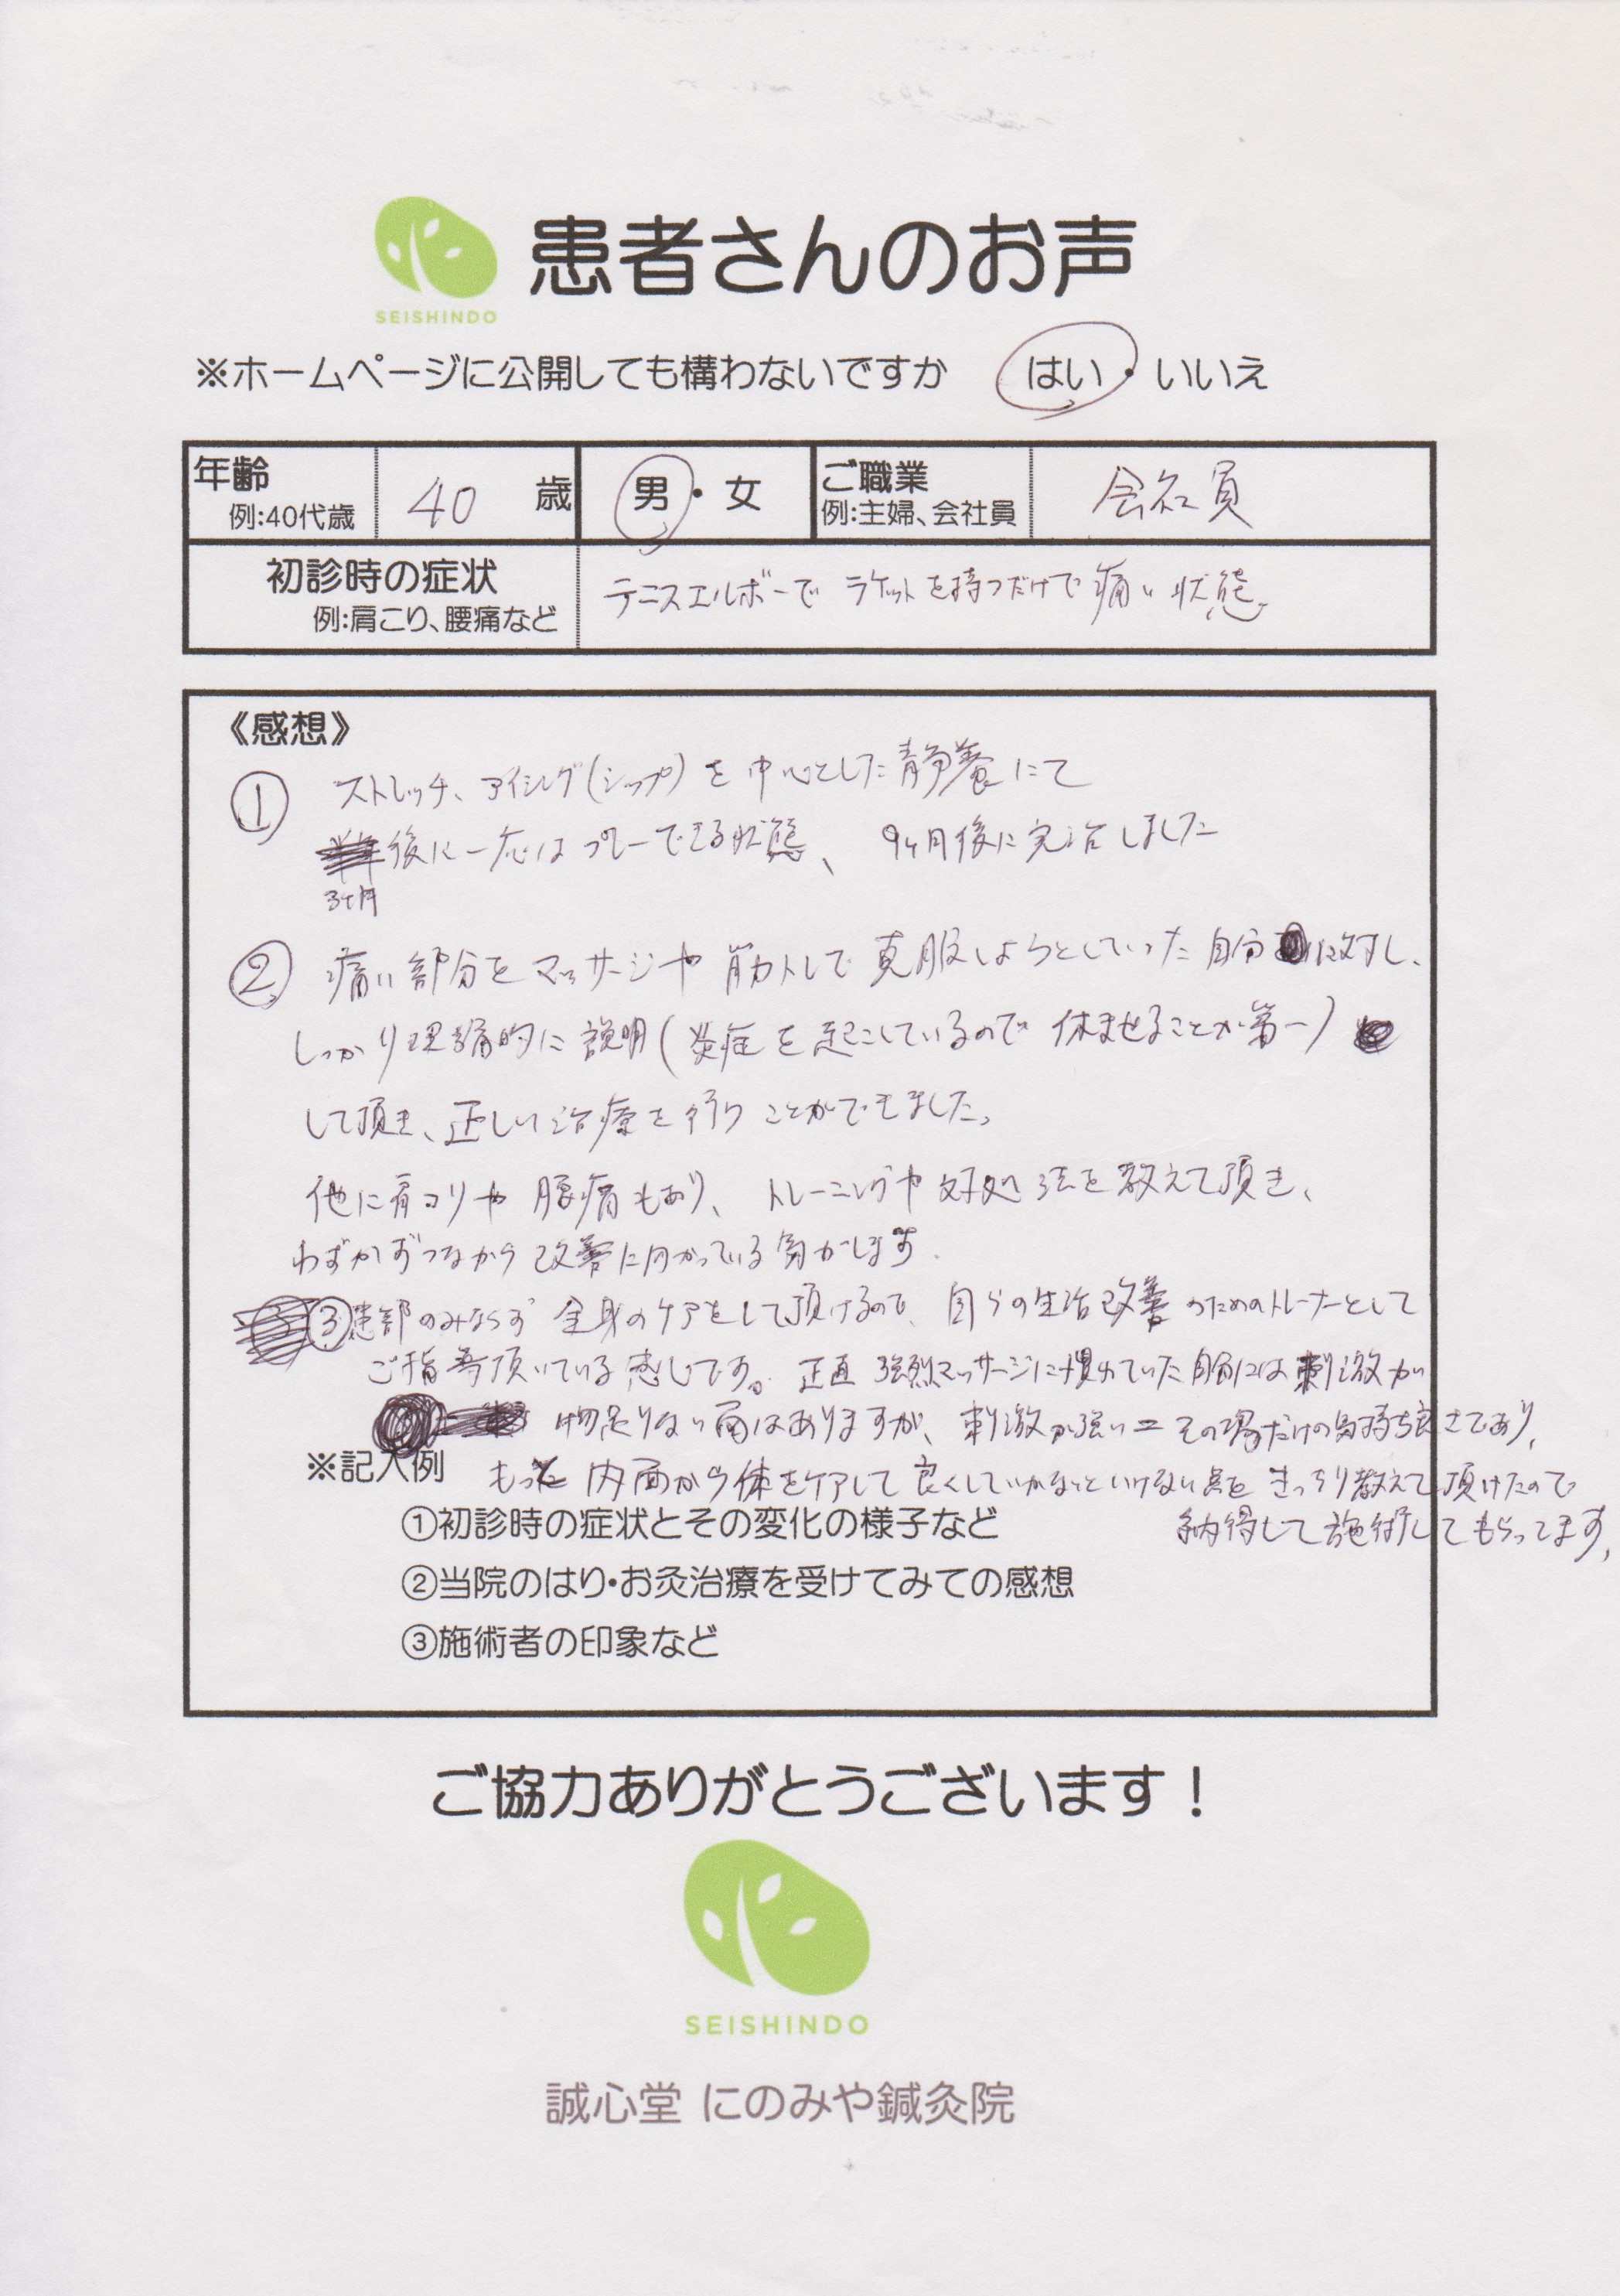 SEISHINDO
患者さんのお声
※ホームページに公開しても構わないですか はい・いいえ
年齢 例:40代歳 40 歳 男・女 ご職業 例:主婦、会社員 会社員
初診時の症状 例:肩こり、腰痛など テニスエルボーで ラケットを持つだけで痛い状態
《感想》
① ストレッチ、アイシング(シップ)を中心とした静養にて
後に一応はプレーできる状態、 9ヶ月後に完治しました
3ヶ月
② 痛い部分をマッサージや筋トレで克服しようとしていった自分に対し、
しっかり理論的に説明(炎症を起こしているので休ませることが第一)
して頂き、正しい治療を行うことができました。
他に肩コリや腰痛もあり、トレーニングや対処法を教えて頂き、
わずかずつながら改善に向かっている気がします.
③患部のみならず全身のケアをして頂けるので、自らの生活改善のためのトレーナーとして
ご指導頂いている感じです。正直強烈マッサージに慣れていた自分には刺激が
物足りない面はありますが、刺激が強い=その場だけの気持ち良さであり、
もっと内面から体をケアして良くしていかないといけない点をきっちり教えて頂けたので
納得して施術してもらってます。
※記入例
①初診時の症状とその変化の様子など
②当院のはり・お灸治療を受けてみての感想
③施術者の印象など
ご協力ありがとうございます！
SEISHINDO
誠心堂 にのみや鍼灸院